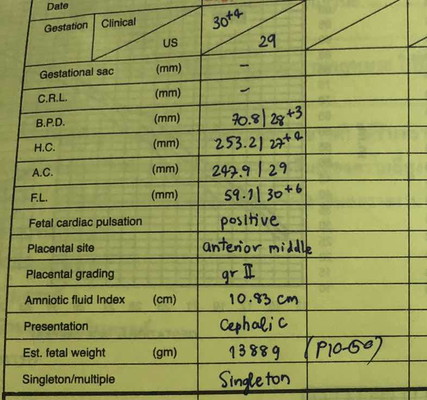 Date
Gestation Clinical 30+4
US 29
Gestational sac (mm) –
C.R.L. (mm) –
B.P.D. (mm) 70.8 | 28+3
H.C. (mm) 253.2 | 27+4
A.C. (mm) 247.9 | 29
F.L. (mm) 59.1 | 30+6
Fetal cardiac pulsation positive
Placental site anterior middle
Placental grading gr II
Amniotic fluid Index (cm) 10.83 cm
Presentation Cephalic
Est. fetal weight (gm) (P10-50)
Singleton/multiple Singleton